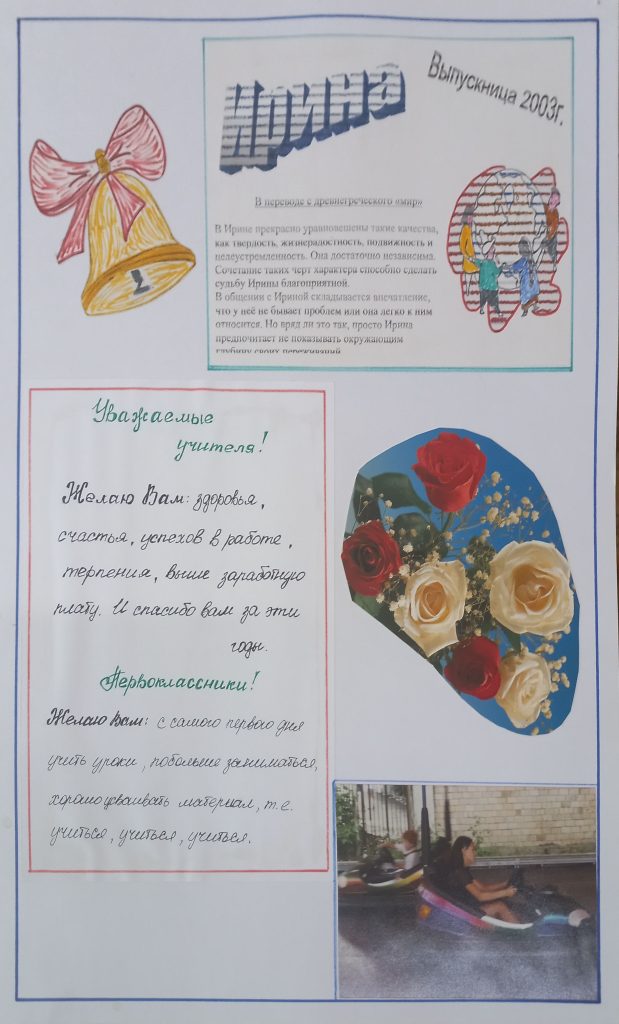 Ирина
Выпускница 2003г.
В переводе с древнегреческого «мир»
В Ирине прекрасно уравновешены такие качества,
как твердость, жизнерадостность, подвижность и
целеустремленность. Она достаточно независима.
Сочетание таких черт характера способно сделать
судьбу Ирины благоприятной.
В общении с Ириной складывается впечатление,
что у неё не бывает проблем или она легко к ним
относится. Но вряд ли это так, просто Ирина
предпочитает не показывать окружающим
глубину своих переживаний.
Уважаемые
учителя!
Желаю Вам: здоровья,
счастья, успехов в работе,
терпения, выше заработную
плату. И спасибо вам за эти
годы.
Первоклассники!
Желаю Вам: с самого первого дня
учить уроки, побольше заниматься,
хорошо усваивать материал, т.е.
учиться, учиться, учиться.